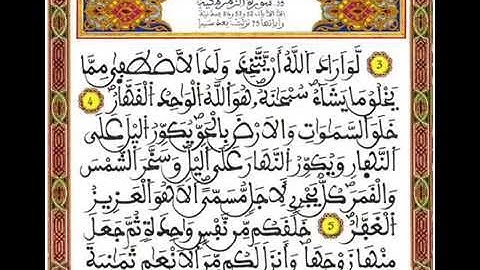 39 سورة الزمر مكية
الا الآيات 52 و53 و54 فمدنية
وآياتها 75 نزلت بعد سبأ
3 لَّوَ اَرَادَ اَللَّهُ أَنْ يَّتَّخِذَ وَلَداً لَّاصْطَفىٰ مِمَّا
يَخْلُقُ مَا يَشَآءُ سُبْحَٰنَهُۥ هُوَ اَللَّهُ اُلْوَٰحِدُ اُلْقَهَّارُ 4
خَلَقَ اَلسَّمَٰوَٰتِ وَالَارْضَ بِالْحَقِّ يُكَوِّرُ اُلَّيْلَ عَلَى
اَلنَّهَارِ وَيُكَوِّرُ اُلنَّهَارَ عَلَى اَلَّيْلِ وَسَخَّرَ اَلشَّمْسَ
وَالْقَمَرَ كُلٌّ يَجْرِي لِأَجَلٍ مُّسَمًّى اَلَا هُوَ اَلْعَزِيزُ
اُلْغَفَّٰرُ 5 خَلَقَكُم مِّن نَّفْسٍ وَٰحِدَةٍ ثُمَّ جَعَلَ
مِنْهَا زَوْجَهَا وَأَنزَلَ لَكُم مِّنَ اَلَانْعَٰمِ ثَمَٰنِيَةَ